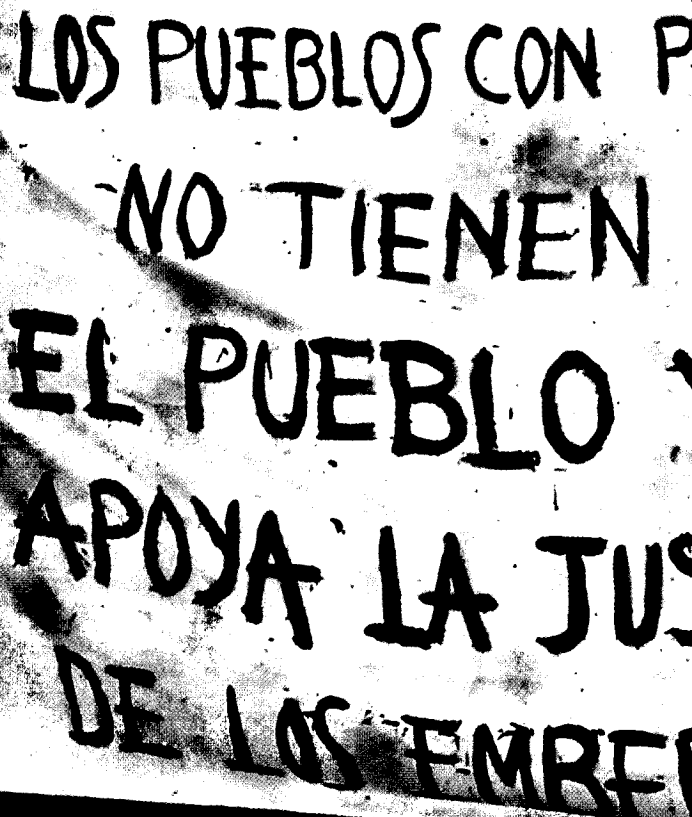 LOS PUEBLOS CON P
NO TIENEN
EL PUEBLO Y
APOYA LA JUS
DE LOS EMBER